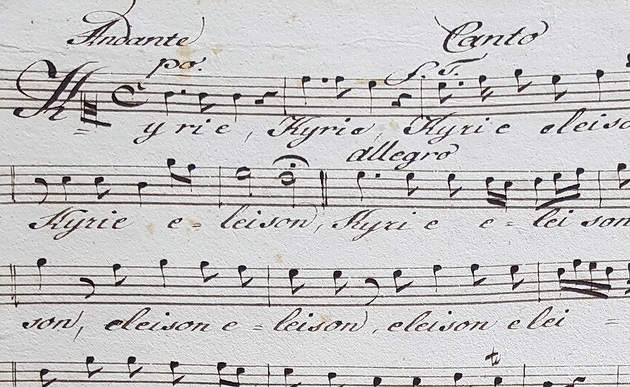 Andante Canto
po.
Kyrie, Kyrie, Kyrie eleiso
allegro
Kyrie e-leison, Kyrie e-leison
son, eleison e-leison, eleison elei-